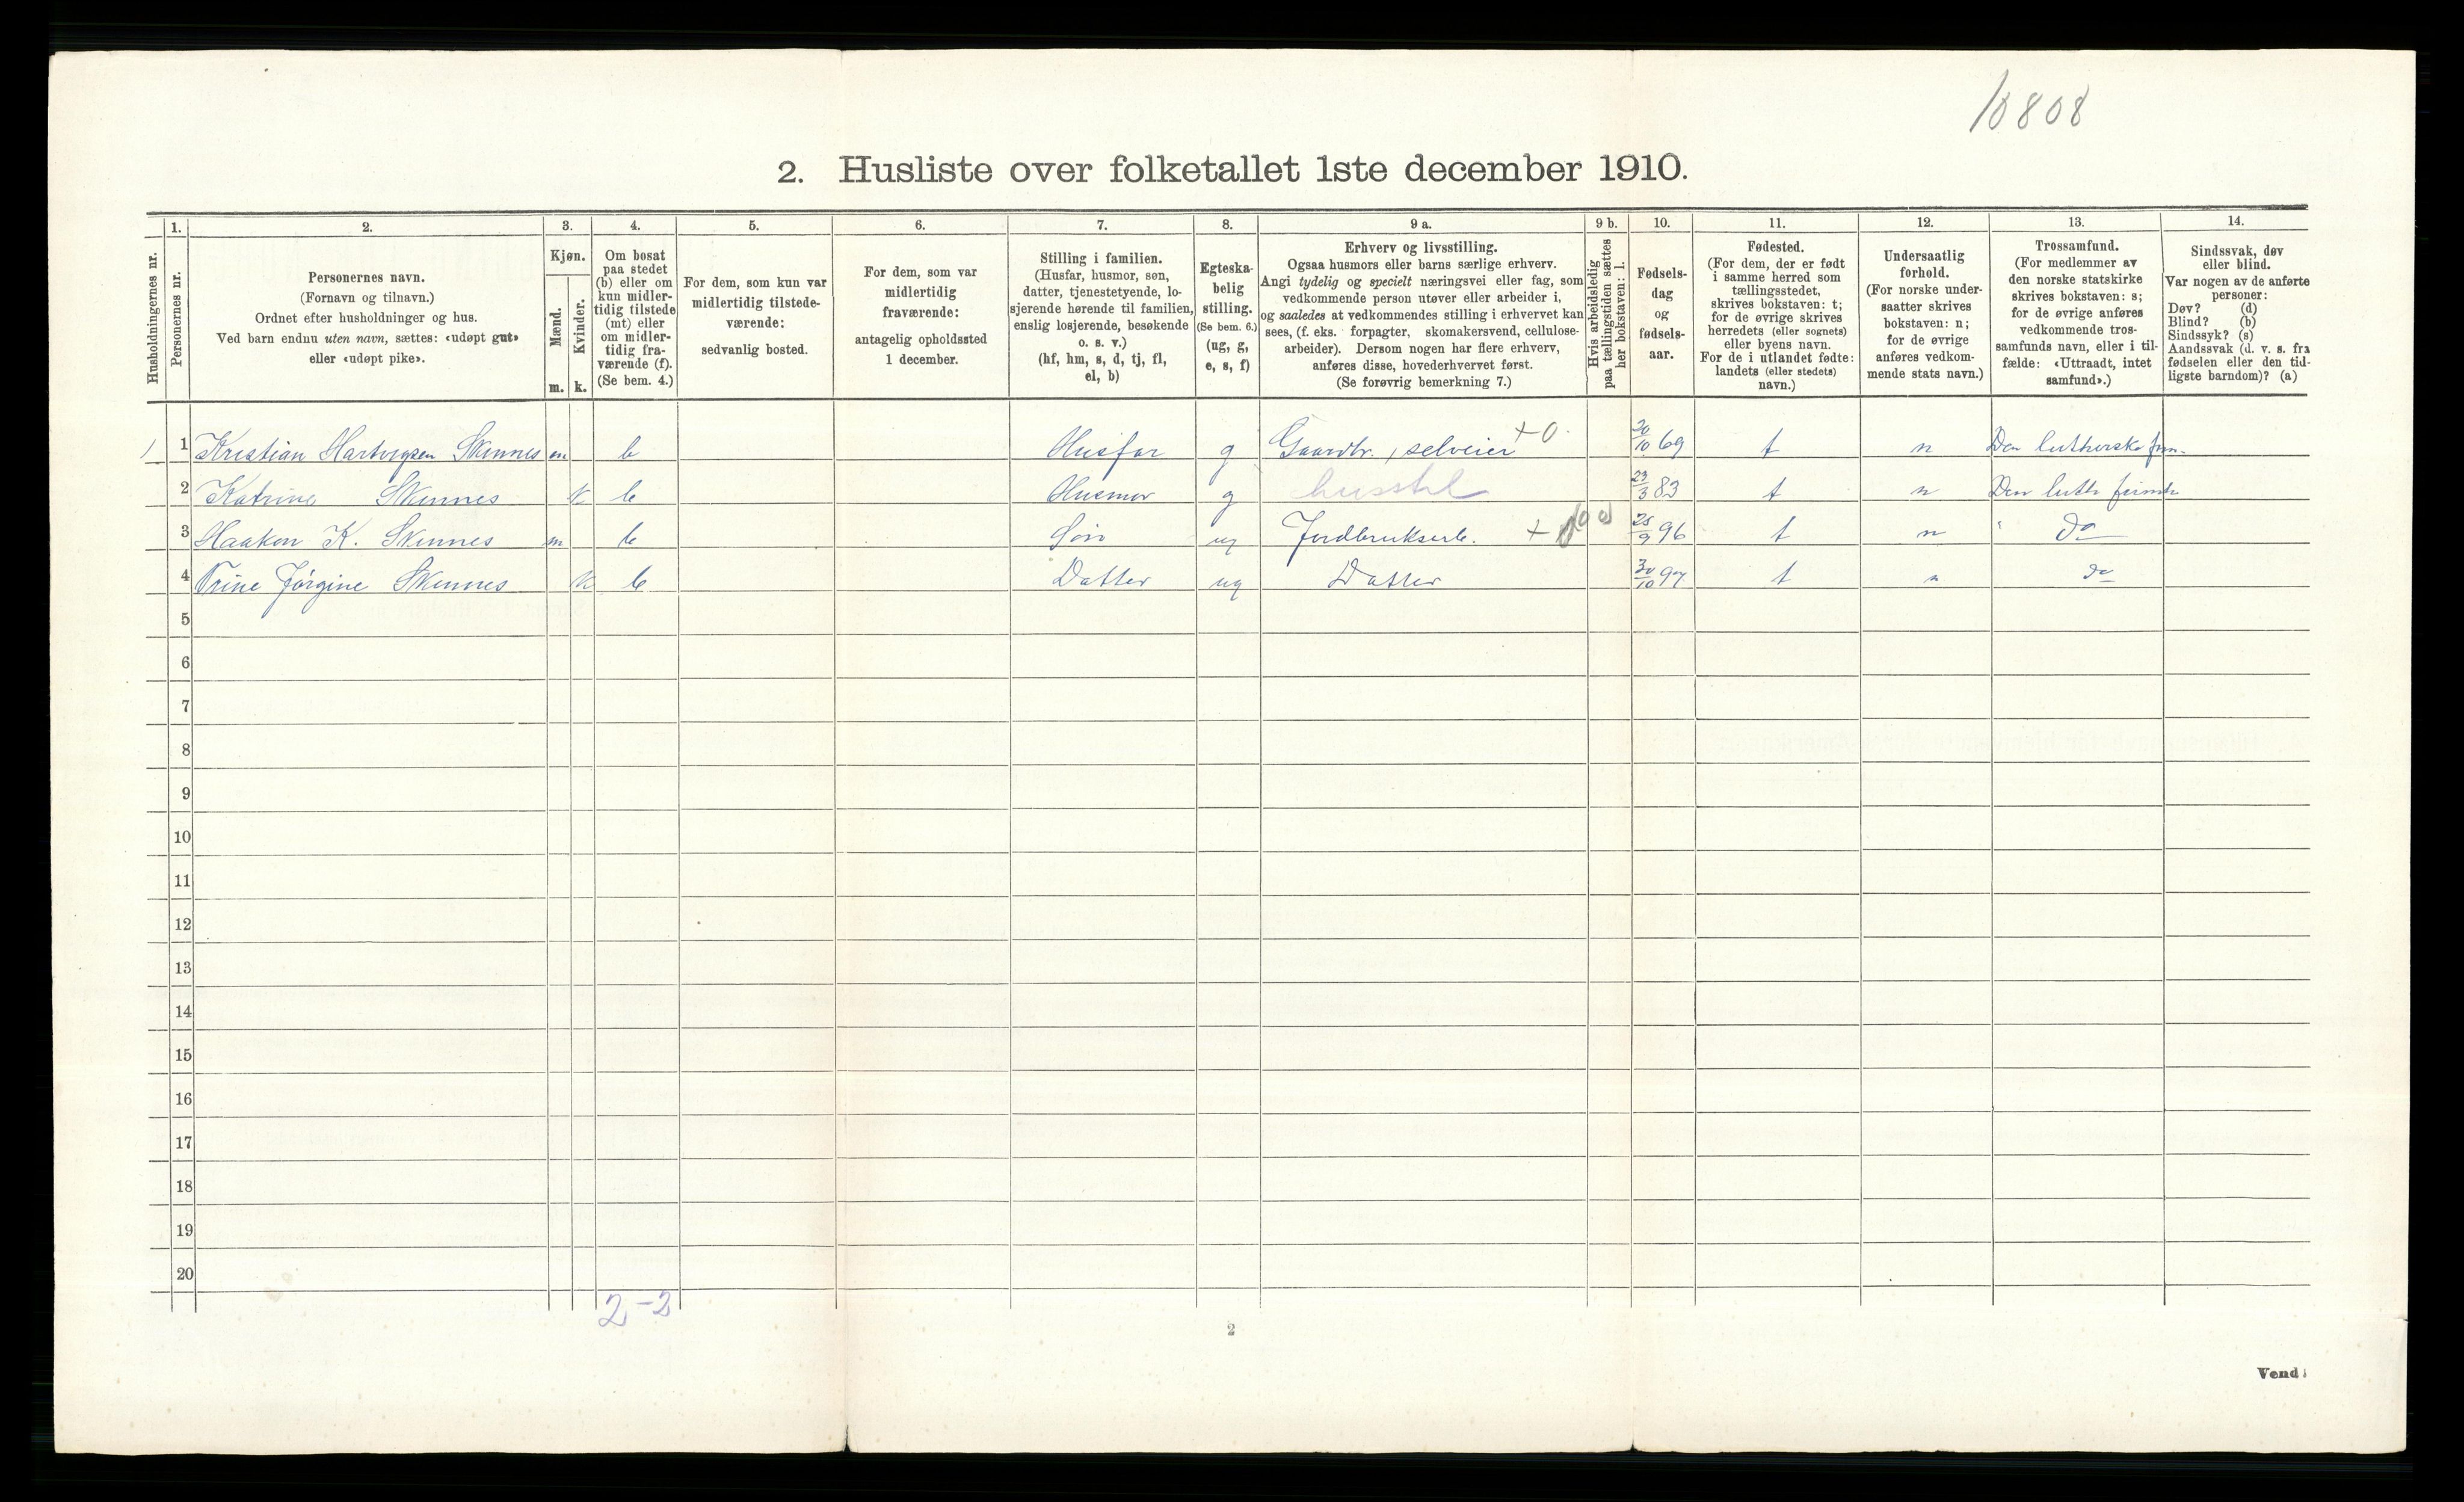 10808
2. Husliste over folketallet 1ste december 1910.
Husholdningernes nr.
1.
Personernes nr.
2.
Personernes navn.
(Fornavn og tilnavn.)
Ordnet efter husholdninger og hus.
Ved barn endnu uten navn, sættes: «udøpt gut»
eller «udøpt pike».
3.
Kjøn.
Mænd.
m.
Kvinder.
k.
4.
Om bosat
paa stedet
(b) eller om
kun midler-
tidig tilstede
(mt) eller
om midler-
tidig fra-
værende (f).
(Se bem. 4.)
5.
For dem, som kun var
midlertidig tilstede-
værende:
sedvanlig bosted.
6.
For dem, som var
midlertidig
fraværende:
antagelig opholdssted
1 december.
7.
Stilling i familien.
(Husfar, husmor, søn,
datter, tjenestetyende, lo-
sjerende hørende til familien,
enslig losjerende, besøkende
o. s. v.)
(hf, hm, s, d, tj, fl,
el, b)
8.
Egteska-
belig
stilling.
(Se bem. 6.)
(ug, g,
e, s, f)
9 a.
Erhverv og livsstilling.
Ogsaa husmors eller barns særlige erhverv.
Angi tydelig og specielt næringsvei eller fag, som
vedkommende person utøver eller arbeider i,
og saaledes at vedkommendes stilling i erhvervet kan
sees, (f. eks. forpagter, skomakersvend, cellulose-
arbeider). Dersom nogen har flere erhverv,
anføres disse, hovederhvervet først.
(Se forøvrig bemerkning 7.)
9 b.
Hvis arbeidsledig
paa tællingstiden sættes
her bokstaven: l.
10.
Fødsels-
dag
og
fødsels-
aar.
11.
Fødested.
(For dem, der er født
i samme herred som
tællingsstedet,
skrives bokstaven: t;
for de øvrige skrives
herredets (eller sognets)
eller byens navn.
For de i utlandet fødte:
landets (eller stedets)
navn.)
12.
Undersaatlig
forhold.
(For norske under-
saatter skrives
bokstaven: n;
for de øvrige
anføres vedkom-
mende stats navn.)
13.
Trossamfund.
(For medlemmer av
den norske statskirke
skrives bokstaven: s;
for de øvrige anføres
vedkommende tros-
samfunds navn, eller i til-
fælde: «Uttraadt, intet
samfund».)
14.
Sindssvak, døv
eller blind.
Var nogen av de anførte
personer:
Døv? (d)
Blind? (b)
Sindssyk? (s)
Aandssvak (d. v. s. fra
fødselen eller den tid-
ligste barndom)? (a)
1 1 Kristian Hartvigsen Skinnes m b Husfar g Gaardbr., selveier +0 20/10 69 t n Den lutherske frim.
2 Katrine Skinnes k b Husmor g husstel 23/3 83 t n Den luth frimh
3 Haakon K. Skinnes m b Søn ug Jordbruksarb. + 25/9 96 t n " do
4 Trine Jørgine Skinnes k b Datter ug Datter 30/10 97 t n do
5
6
7
8
9
10
11
12
13
14
15
16
17
18
19
20
2-2
2
Vend!